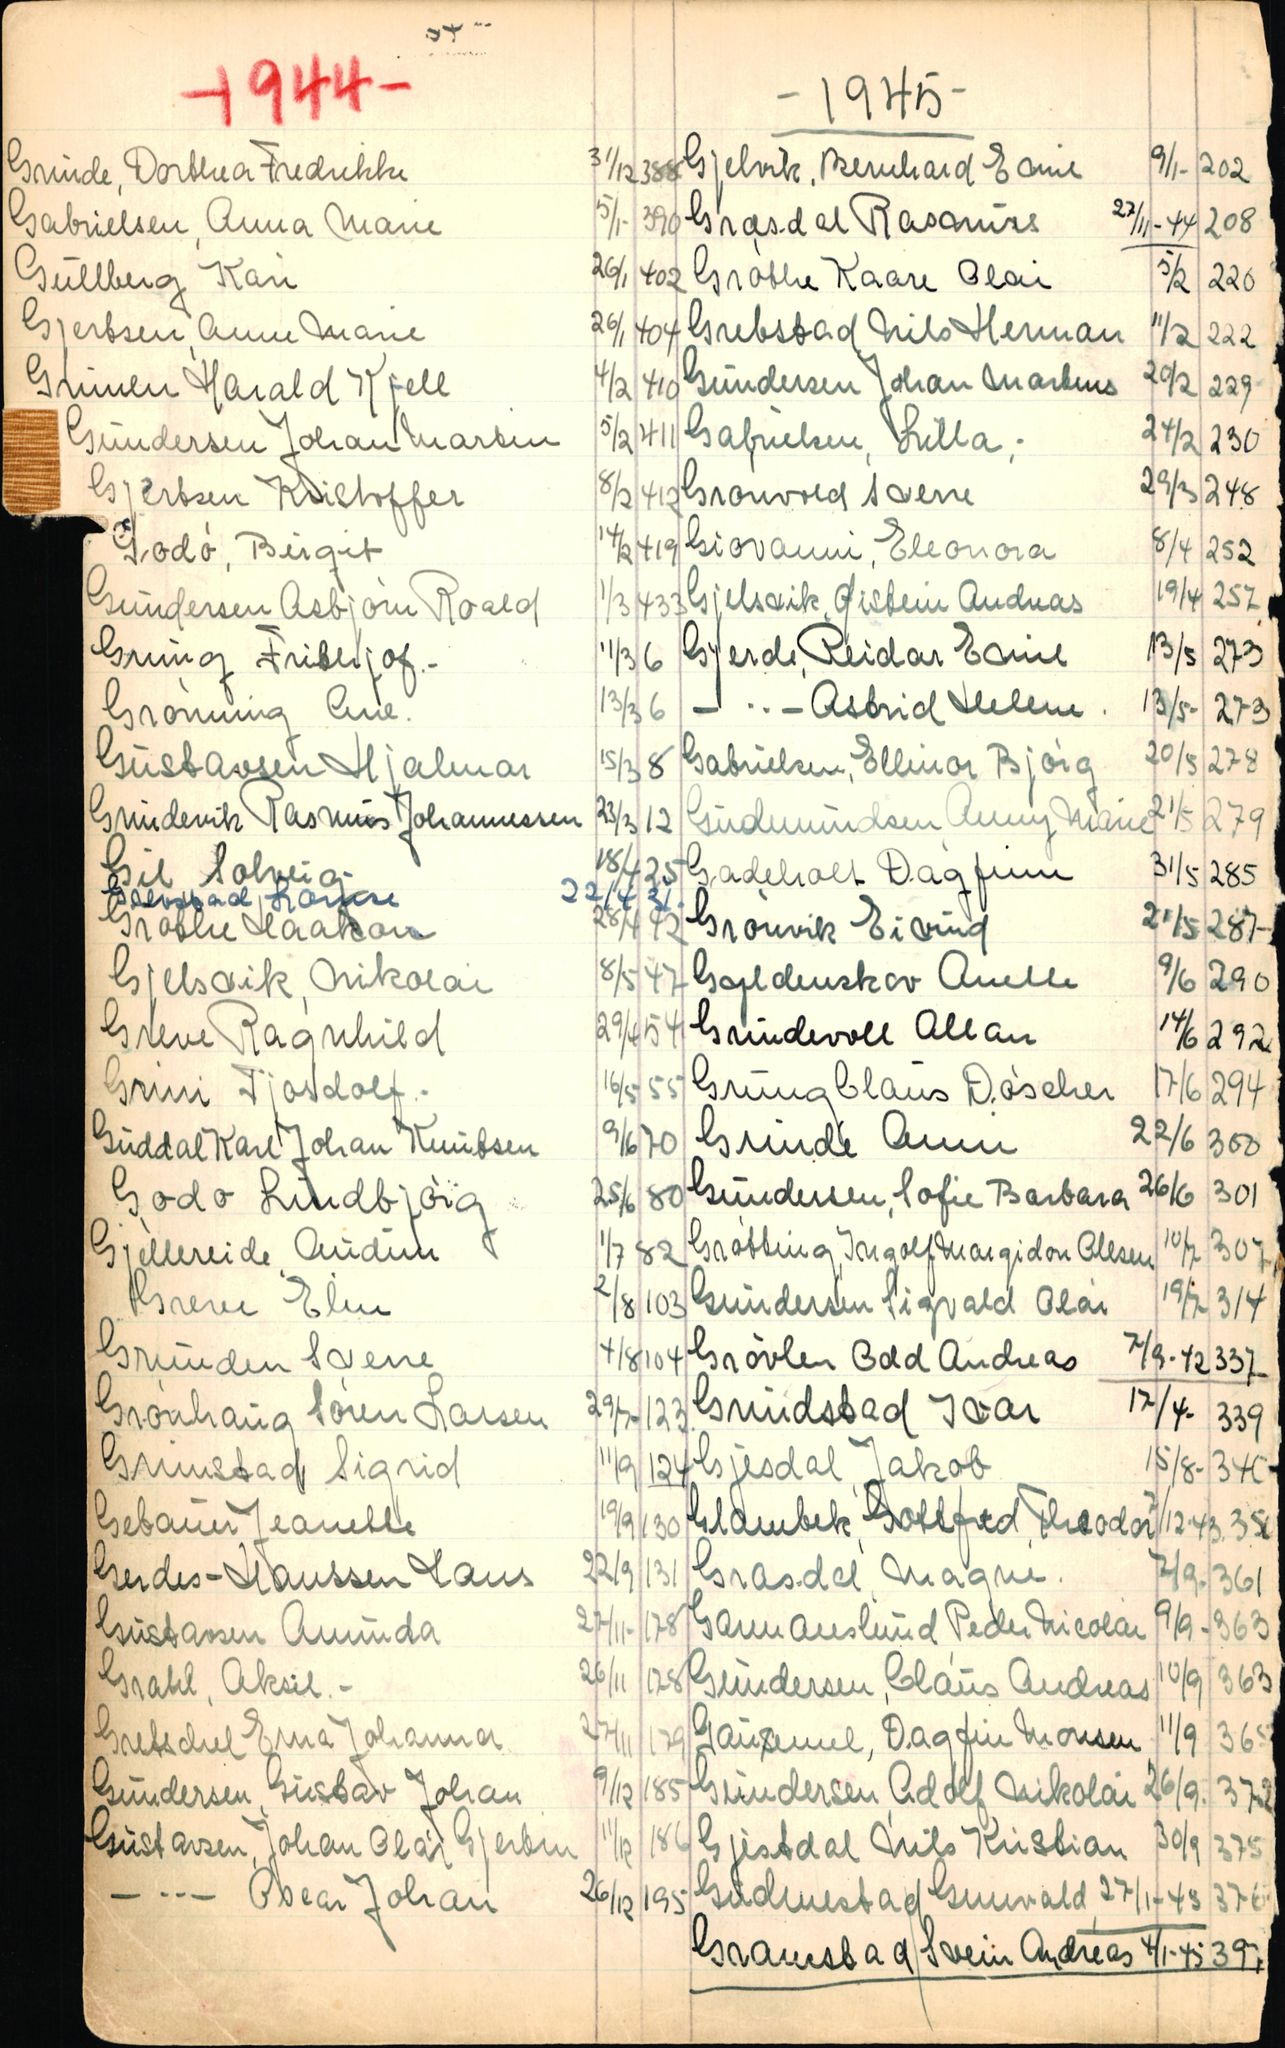 -1944-
Grinde, Dorthea Fredrikke 31/12 388
Gabrielsen, Anna Marie 5/1- 390
Gullberg Kari 26/1 402
Gjertsen, Anne Marie 26/1 404
Grimen Harald Kjell 4/2 410
Gundersen Johan Martin 5/2 411
Gjertsen Kristoffer 8/2 412
Godö, Birgit 14/2 419
Gundersen Asbjörn Roald 1/3 433
Grung Frithjof.- 11/3 6
Grönning Ane. 13/3 6
Gustavsen Hjalmar 15/3 8
Grindevik Rasmus Johannessen 23/3 12
Gil Solveig- 18/4 25
22/4 31.
Gröthe Haakon 28/4 42
Gjelsvik, Nikolai 8/5 47
Greve Ragnhild 29/4 54
Grini Tjodolf.- 16/5 55
Guddal Karl Johan Knutsen 9/6 70
Godö Lindbjörg 25/6 80
Gjellereide, Audun 1/7 82
Greve Elin 2/8 103
Grunden Sverre 4/8 104
Grönhaug Sören Larsen 29/7- 123
Grimstad Sigrid 11/9 124
Gebauer Jeanette 19/9 130
Gerdes-Hanssen Hans 22/9 131
Gustavsen Aminda 27/11- 178
Grahl, Aksil.- 26/11 178
Gretschel Erna Johanna 27/11 179
Gundersen, Gustav Johan 9/12 185
Gustavsen, Johan Olaf Gjertin 11/12 186
- ··· - Oscar Johan 26/12 195
-1945-
Gjelvik, Bernhard Emil 9/1- 202
Grasdal Rasmus 27/11-44 208
Gröthe Kaare Olai 5/2 220
Grebstad Nils Herman 11/2 222
Gundersen Johan Martinus 20/2 229
Gabrielsen, Lilla. 24/2 230
Grönvold Sverre 29/3 248
Giovanni, Eleonora 8/4 252
Gjelsvik, Öistein Andreas 19/4 257
Gjerde, Reidar Emil 13/5 273
- ·· - Astrid Helene. 13/5- 273
Gabrielsen, Ellinor Björg 20/5 278
Gudmundsen Anny Marie 21/5 279
Gadeholt Dagfinn 31/5 285
Grönvik Eivind 21/5 287-
Gyldenskov Anelle 9/6 290
Grindevoll Allan 14/6 292
Grung Claus Döscher 17/6 294
Grinde Ann 22/6 300
Gundersen, Sofie Barbara 26/6 301
Grötting, Ingolf Margidon Olsen 10/7 307
Gundersen Sigvald Olai 19/7 314
Grövlen Odd Andreas 7/9-42 337
Grindstad Ivar 17/4- 339
Gjesdal, Jakob 15/8- 340
Glambek, Gottfred Theodor /12-43 35
Grasdal Magne. 7/9- 361
Garmannslund Peder Nicolai 9/9- 363
Gundersen, Claus Andreas 10/9 363
Gausemel, Dagfin Monsen 11/9 365
Gundersen Adolf Nikolai 26/9. 372
Gjestdal Nils Kristian 30/9 375
Gudmestad Gunvald, 27/1-43 376
Gramstad Svein Andreas 4/1-45 397